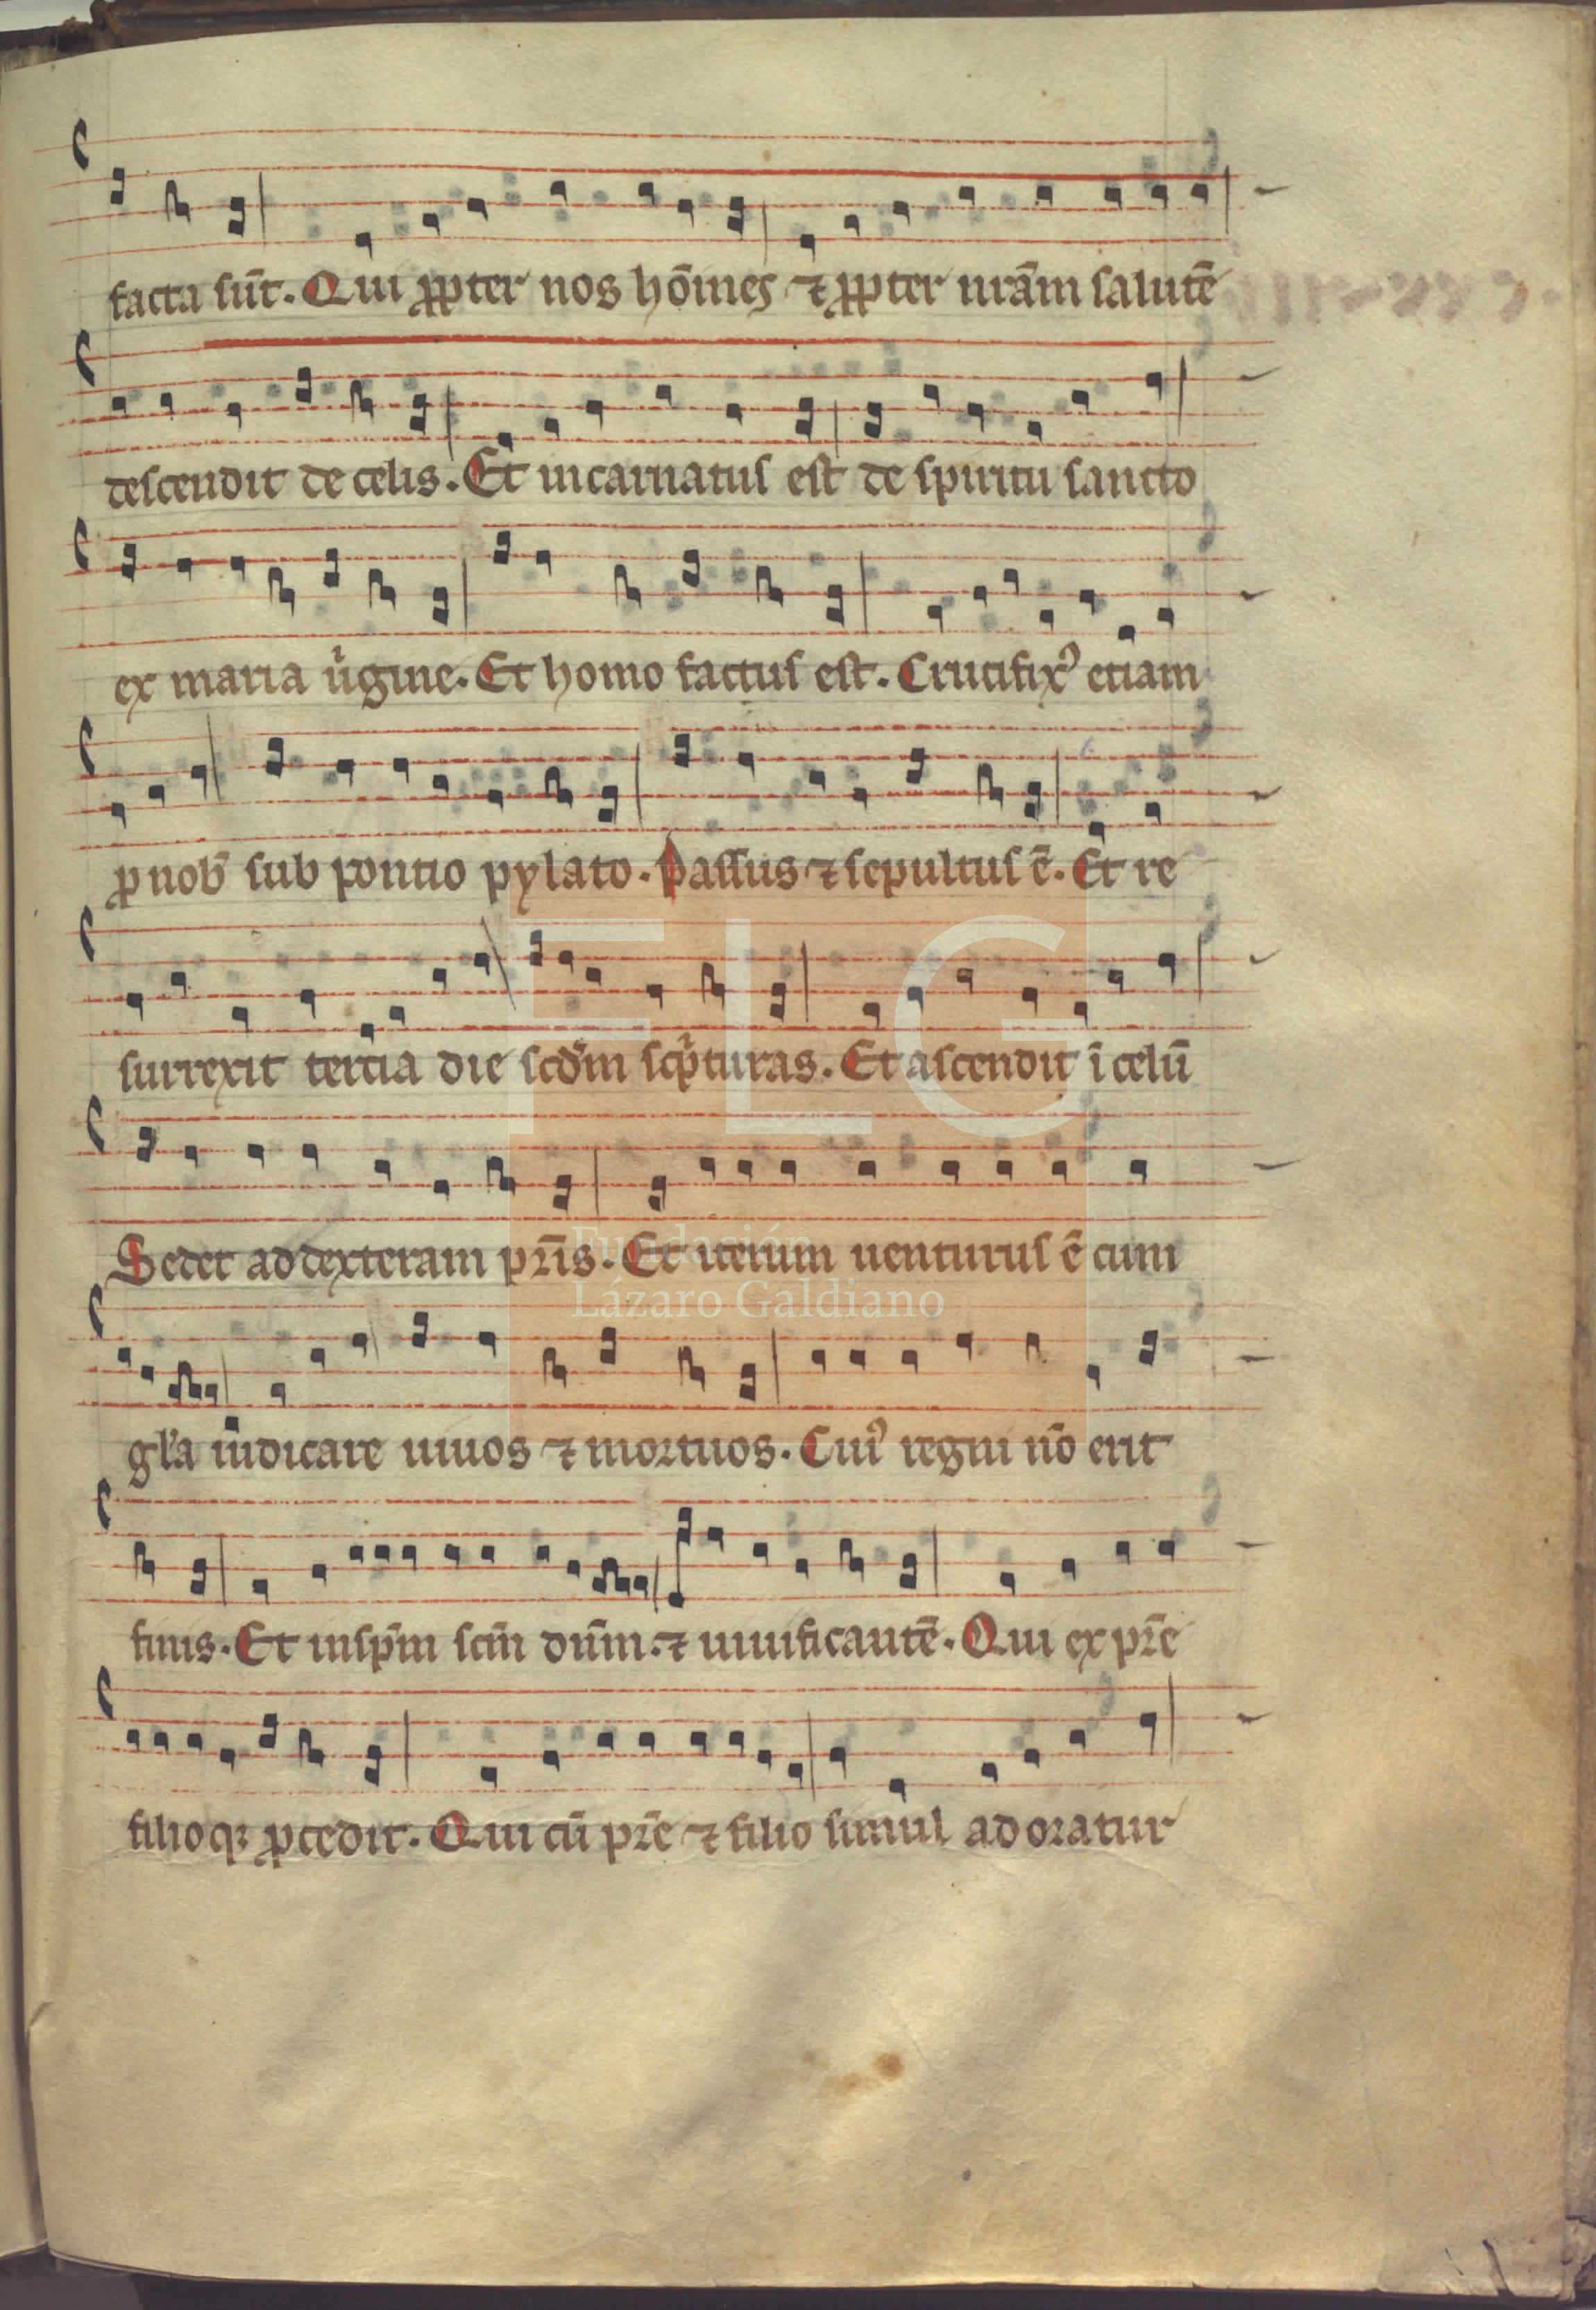 facta sūt. Qui ꝓpter nos hōines ⁊ ꝓpter nr̄am salutē
descendit de celis. Et incarnatus est de spiritu sancto
ex maria uͥgine. Et homo factus est. Crucifixꝰ etiam
ꝓ nob̄ sub pontio pylato. Passus ⁊ sepultus ē. Et re
surrexit tercia die scd̄m scͥpturas. Et ascendit ī celū
Sedet ad dexteram pr̄is. Et iterum uenturus ē cum
gl̄a iudicare uiuos ⁊ mortuos. Cuiꝰ regni nō erit
finis. Et in sp̄m scm̄ dn̄m. ⁊ uiuificantē. Qui ex pr̄e
filioqꝫ ꝓcedit. Qui cū pr̄e ⁊ filio simul adoratur
FLG
Fundación
Lázaro Galdiano